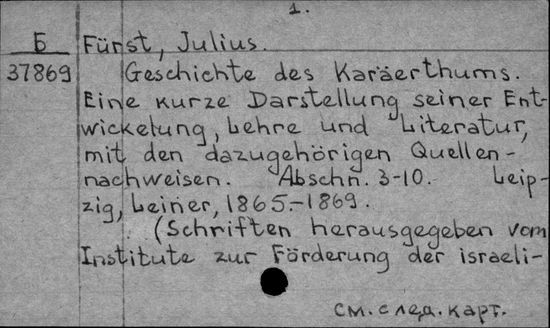 1.
Б Fürst, Julius.
37869 Geschichte des Karäerthums.
Eine kurze Darstellung seiner Ent-
wickelung, Lehre und Literatur,
mit den dazugehörigen Quellen-
nachweisen. Abschn. 3-10. Leip-
zig, Leiner, 1865.-1869.
(Schriften herausgegeben vom
Institute zur Förderung der israeli-
см. след. карт.